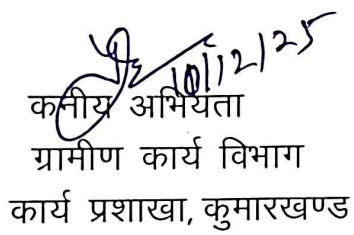 10/12/25
कनीय अभियंता
ग्रामीण कार्य विभाग
कार्य प्रशाखा, कुमारखण्ड